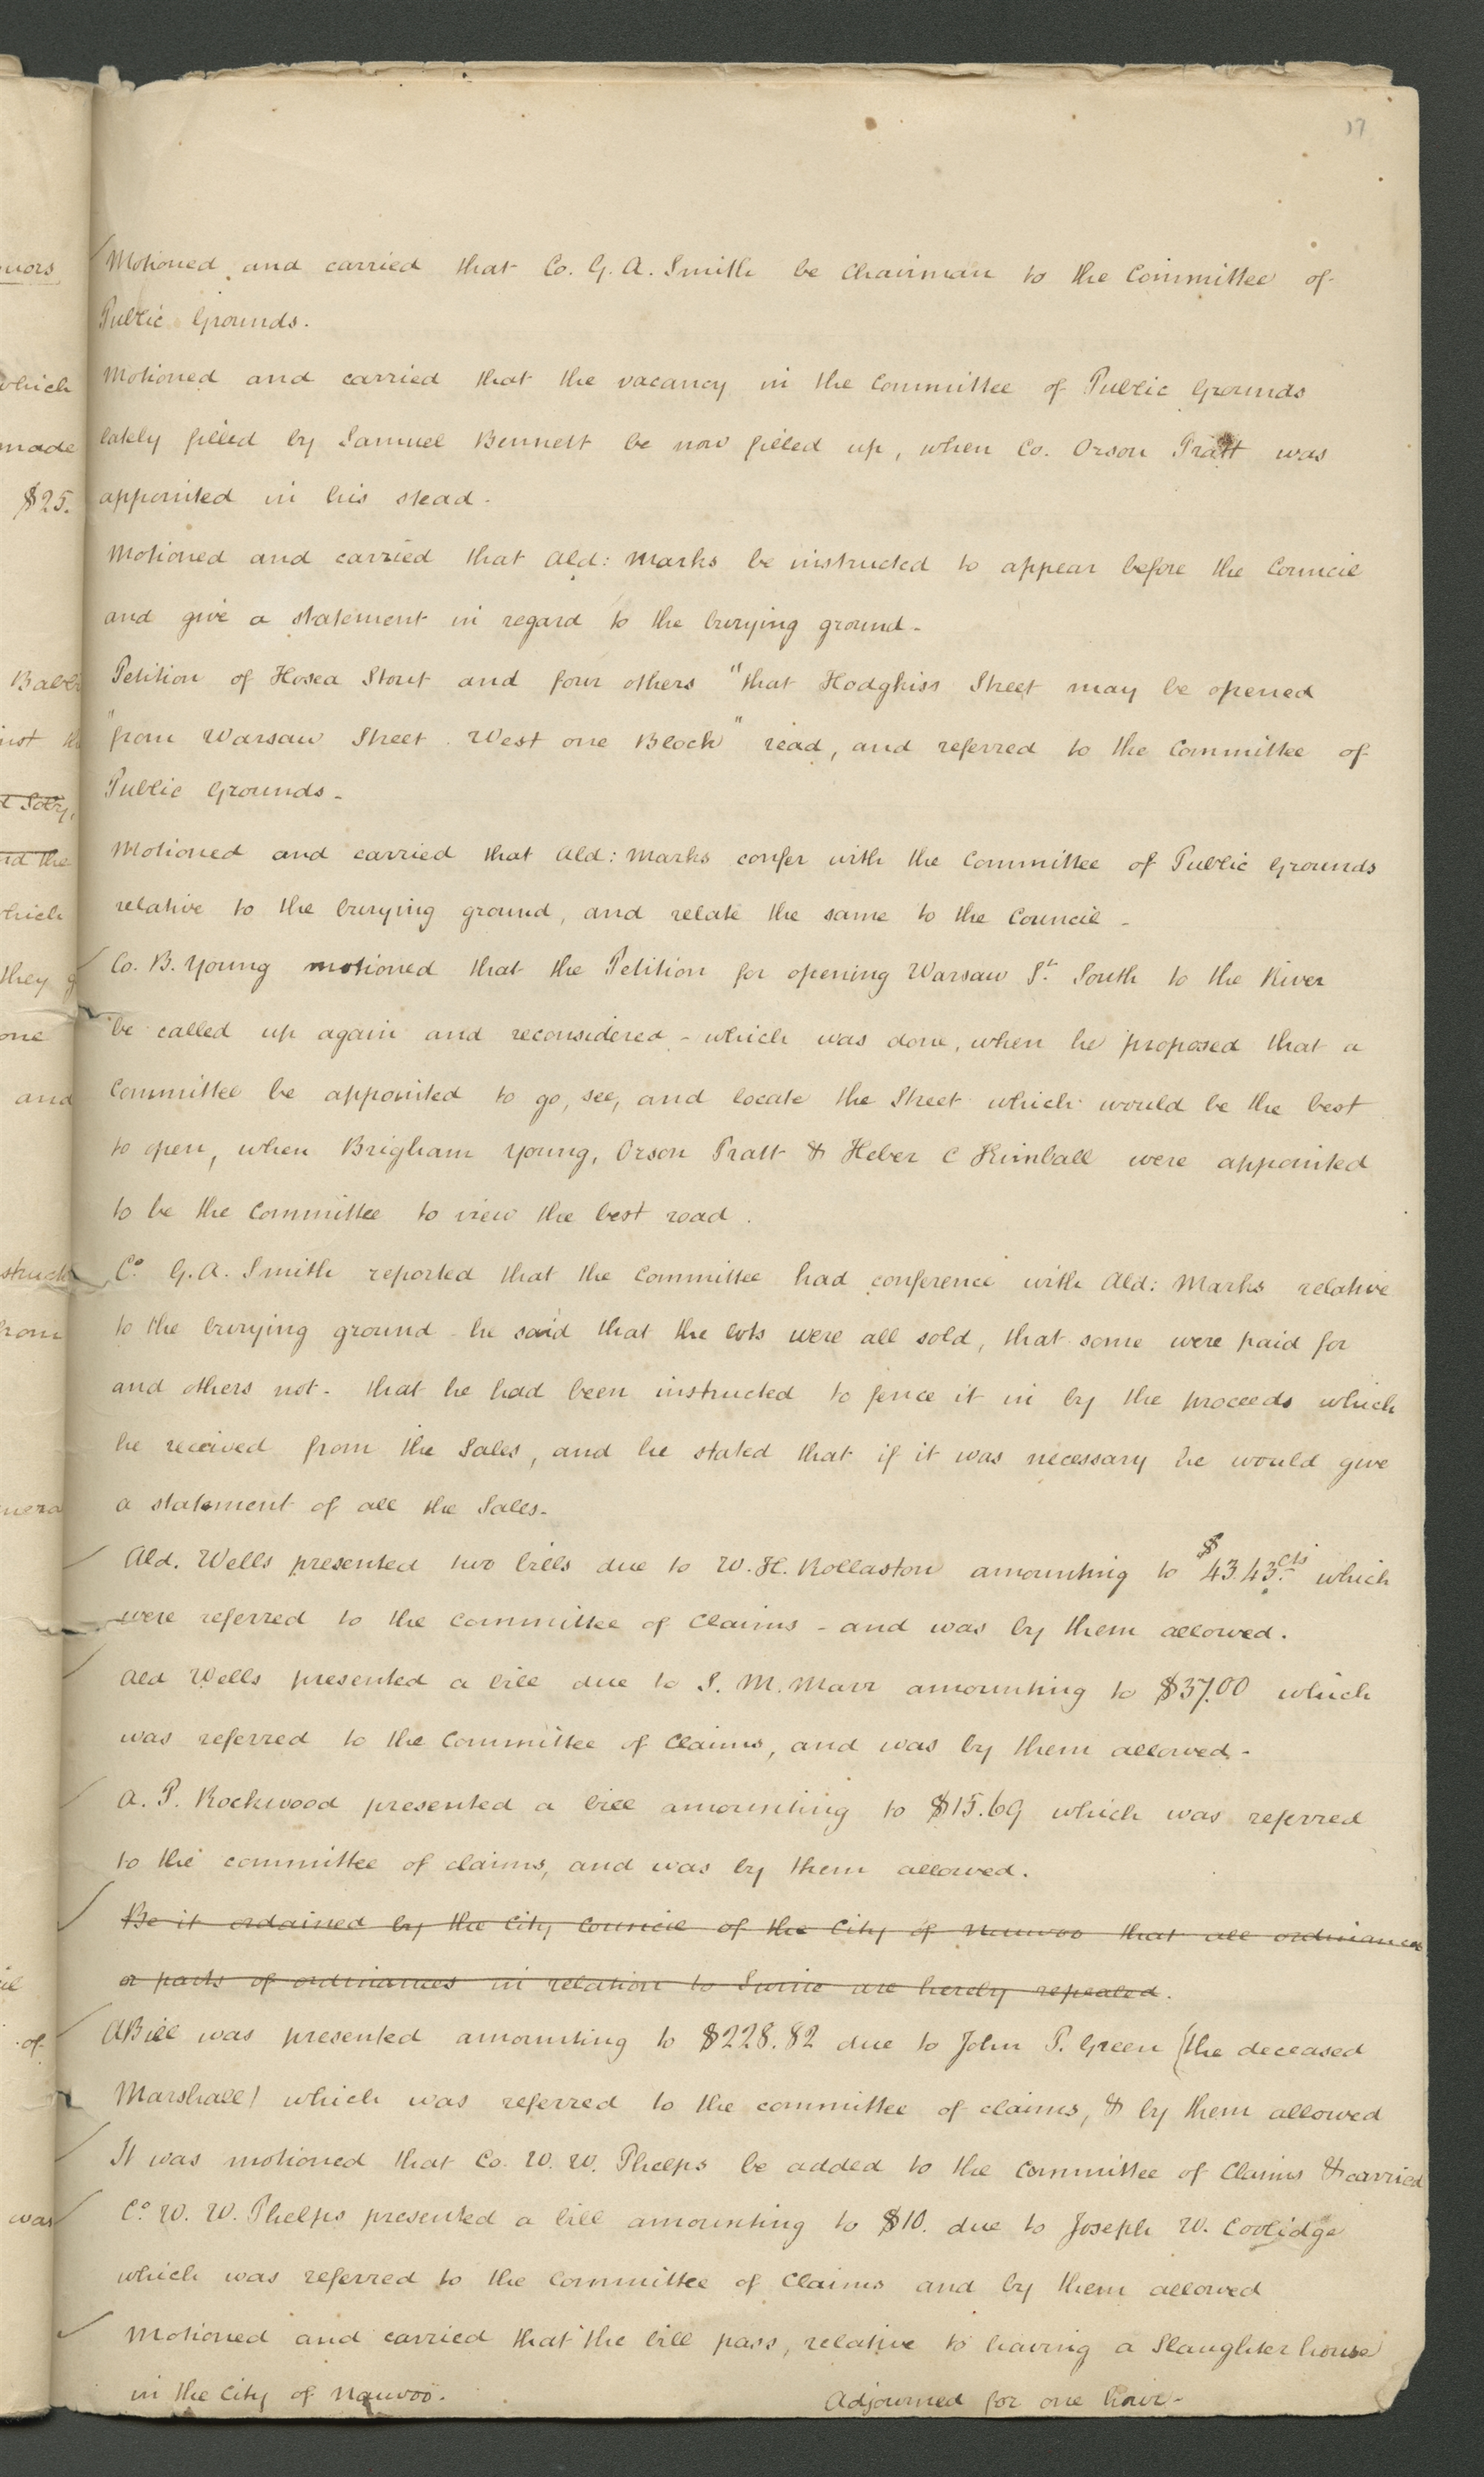 17
Motioned and carried that Co. G. A. Smith be Chairman to the Committee of
Public Grounds.
Motioned and carried that the vacancy in the Committee of Public Grounds
lately filled by Samuel Bennett be now filled up, when Co. Orson Pratt was
appointed in his stead.
Motioned and carried that Ald: Marks be instructed to appear before the Council
and give a statement in regard to the burying ground-
Petition of Hosea Stout and four others "that Hodgkiss Street may be opened
"from Warsaw Street West one Block" read, and referred to the Committee of
Public Grounds-
Motioned and carried that Ald: Marks confer with the Committee of Public Grounds
relative to the burying ground, and relate the same to the Council-
Co. B. Young motioned that the Petition for opening Warsaw St. South to the River
be called up again and reconsidered - which was done, when he proposed that a
Committee be appointed to go, see, and locate the Street which would be the best
to open, when Brigham Young, Orson Pratt & Heber C Kimball were appointed
to be the Committee to view the best road.
Co. G. A. Smith reported that the Committee had conference with Ald: Marks relative
to the burying ground he said that the lots were all sold, that some were paid for
and others not- that he had been instructed to fence it in by the proceeds which
he received from the Sales, and he stated that if it was necessary he would give
a statement of all the Sales-
Ald. Wells presented two bills due to W. H. Rollaston amounting to $43.43 cts which
were referred to the Committee of Claims - and was by them allowed.
Ald Wells presented a bill due to S. M. Marr amounting to $37.00 which
was referred to the Committee of Claims, and was by them allowed-
A. P. Rockwood presented a bill amounting to $15.69 which was referred
to the committee of claims, and was by them allowed.
Be it ordained by the City Council of the City of Nauvoo that all ordinances
or parts of ordinances in relation to Swine are hereby repealed.
A Bill was presented amounting to $228.82 due to John P. Green (the deceased
Marshall) which was referred to the committee of claims, & by them allowed
It was motioned that Co. W. W. Phelps be added to the Committee of Claims & carried
Co. W. W. Phelps presented a bill amounting to $10. due to Joseph W. Coolidge
which was referred to the Committee of Claims and by them allowed
Motioned and carried that the bill pass, relative to having a Slaughter house
in the City of Nauvoo. Adjourned for one hour-